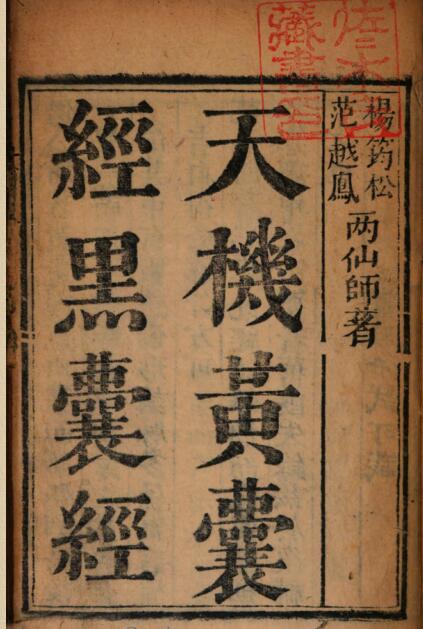 楊筠松
范越鳳
两仙師著
天機黃囊
經黑囊經
藏書